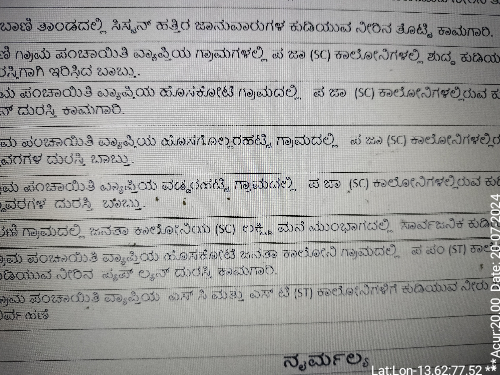 ಬಾಣಿ ತಾಂಡದಲ್ಲಿ ಸಿಸ್ಟನ್ ಹತ್ತಿರ ಜಾನುವಾರುಗಳ ಕುಡಿಯುವ ನೀರಿನ ತೊಟ್ಟಿ ಕಾಮಗಾರಿ.
ಗ್ರಾಮ ಪಂಚಾಯಿತಿ ವ್ಯಾಪ್ತಿಯ ಗ್ರಾಮಗಳಲ್ಲಿ ಪ ಜಾ (SC) ಕಾಲೋನಿಗಳಲ್ಲಿ ಶುದ್ಧ ಕುಡಿಯ
ಇರಿಸಿದ ಬಾಬ್ತು.
ಮ ಪಂಚಾಯಿತಿ ವ್ಯಾಪ್ತಿಯ ಹೊಸಕೋಟೆ ಗ್ರಾಮದಲ್ಲಿ ಪ ಜಾ (SC) ಕಾಲೋನಿಗಳಲ್ಲಿರುವ ಕು
ನ್ ದುರಸ್ತಿ ಕಾಮಗಾರಿ.
ಮ ಪಂಚಾಯಿತಿ ವ್ಯಾಪ್ತಿಯ ಹೊಸಗೊಲ್ಲರಹಟ್ಟಿ ಗ್ರಾಮದಲ್ಲಿ ಪ ಜಾ (SC) ಕಾಲೋನಿಗಳಲ್ಲಿರ
ವರಗಳ ದುರಸ್ತಿ ಬಾಬ್ತು
ಮ ಪಂಚಾಯಿತಿ ವ್ಯಾಪ್ತಿಯ ವಡ್ಡರಹಟ್ಟಿ ಗ್ರಾಮದಲ್ಲಿ ಪ ಜಾ (SC) ಕಾಲೋನಿಗಳಲ್ಲಿರುವ ಕುಡಿ
ವರಗಳ ದುರಸ್ತಿ ಬಾಬ್ತು.
ಗ್ರಾಮದಲ್ಲಿ ಜನತಾ ಕಾಲೋನಿಯ (SC) ಲಕ್ಷ್ಮಿ ಮನೆ ಮುಂಭಾಗದಲ್ಲಿ ಸಾರ್ವಜನಿಕ ಕುಡಿ
ಗ್ರಾಮ ಪಂಚಾಯಿತಿ ವ್ಯಾಪ್ತಿಯ ಹೊಸಕೋಟೆ ಜನತಾ ಕಾಲೋನಿ ಗ್ರಾಮದಲ್ಲಿ ಪ ಪಂ (ST) ಕಾಲ
ಡಿಯುವ ನೀರಿನ ಪೈಪ್ ಲೈನ್ ದುರಸ್ತಿ ಕಾಮಗಾರಿ.
ಗ್ರಾಮ ಪಂಚಾಯಿತಿ ವ್ಯಾಪ್ತಿಯ ಎಸ್ ಸಿ ಮತ್ತು ಎಸ್ ಟಿ (ST) ಕಾಲೋನಿಗಳಿಗೆ ಕುಡಿಯುವ ನೀರು
ರ್ವಹಣೆ
ನೈರ್ಮಲ್ಯ
Lat:Lon-13.62:77.52 **Acur:20.00 Date: 20/07/2024